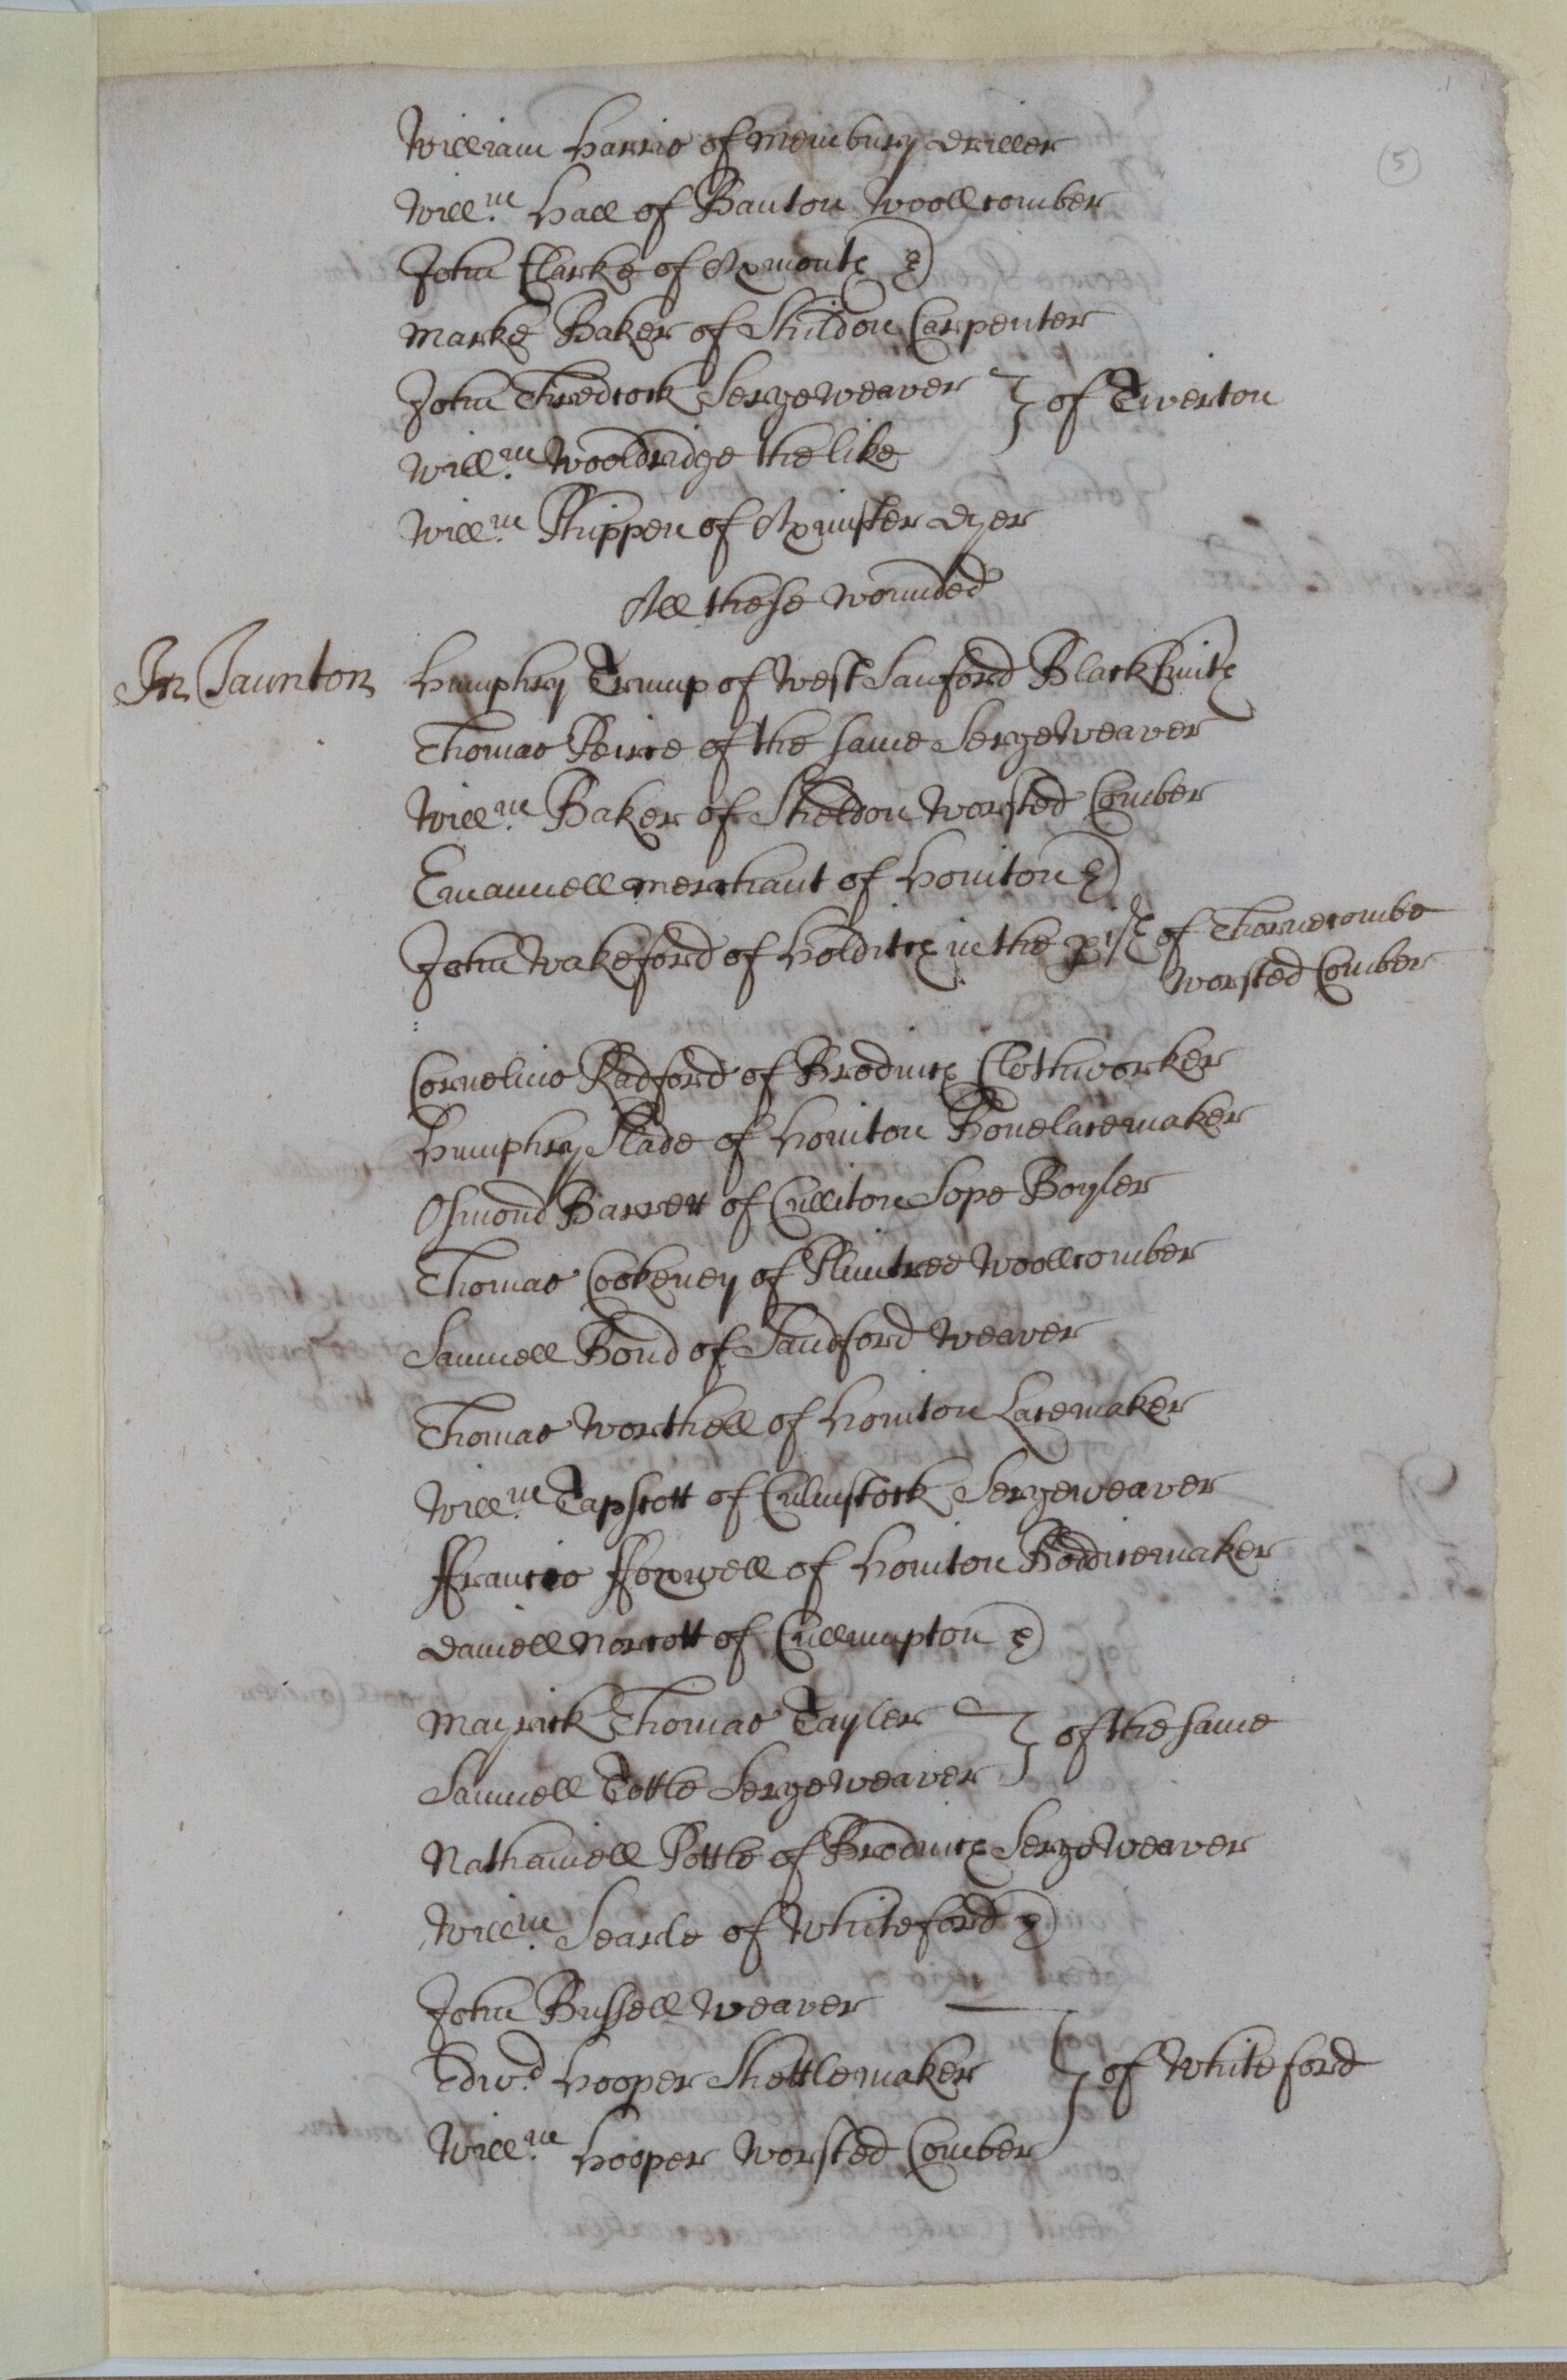 5
William Harris of Membury driller
Will.m Hall of Banton Woollcomber
John Clarke of Axmouth
Marke Baker of Shildon Carpenter
John Thredcock Sergeweaver } of Tiverton
Will.m Wooldridge the like
Will.m Phippen of Axmister dyer
All these wounded
In Taunton
Humphry Trump of West Sanford Blacksmith
Thomas Peirce of the same Serge Weaver
Will.m Baker of Sheldon Worsted Comber
Emanuell Merchant of Honiton
John Wakeford of Holditch in the pish of Thornecombe
Worsted Comber
Cornelius Radford of Brodninch Clothworker
Humphry Slade of Honiton Bonelacemaker
Osmond Barrett of Culliton Sope Boyler
Thomas Cookeney of Plimtree Woollcomber
Samuell Bond of Sandford Weaver
Thomas Worthell of Honiton Lacemaker
Will.m Tapscott of Culmstock Sergeweaver
Francis Foxwell of Honiton Boddicemaker
Daniell Norcott of Cullumpton
Mayjack Thomas Tayler } of the same
Samuell Tottle Serge Weaver
Nathaniell Pottle of Brodninch Serge Weaver
Will.m Searle of Whiteford
John Bussell Weaver
Edw.d Hooper Shottlemaker } of Whiteford
Will.m Hooper Worsted Comber